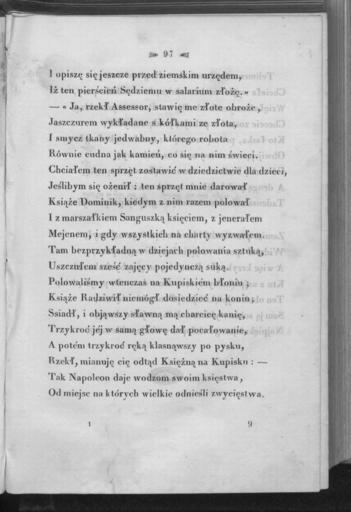 97
I opiszę się jeszcze przed ziemskim urzędem,
Iż ten pierścień Sędziemu w salarium złożę.»
— « Ja, rzekł Assessor, stawię me złote obroże,
Jaszczurem wykładane s kółkami ze złota,
I smycz tkany jedwabny, którego robota
Równie cudna jak kamień, co się na nim świeci.
Chciałem ten sprzęt zostawić w dziedzictwie dla dzieci,
Jeślibym się ożenił ; ten sprzęt mnie darował
Książe Dominik, kiedym z nim razem polował
I z marszałkiem Sanguszką księciem, z jenerałem
Mejenem, i gdy wszystkich na charty wyzwałem.
Tam bezprzykładną w dziejach polowania sztuką,
Uszczułem sześć zajęcy pojedynczą suką.
Polowaliśmy wtenczas na Kupiskiém błoniu ;
Książe Radziwił niemógł dosiedzieć na koniu,
Ssiadł, i objąwszy sławną mą charcicę kanię,
Trzykroć jéj w samą głowę dał pocałowanie,
A potém trzykroć ręką klasnąwszy po pysku,
Rzekł, mianuję cię odtąd Księżną na Kupisku : —
Tak Napoleon daje wodzom swoim księstwa,
Od miejsc na których wielkie odnieśli zwycięstwa.
1 9